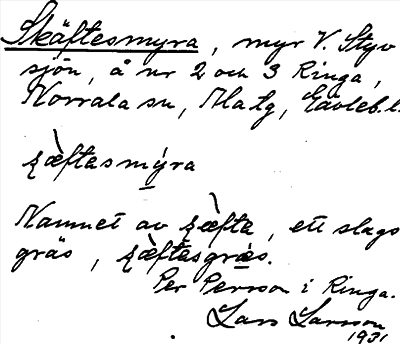 Skäftesmyra, myr V. Styv
sjön, å nr 2 och 3 Ringa,
Norrala sn, Ala tg, Gävleb. l.
ʂæ̀ftasmýra
Namnet av ʂæ̀fta, ett slags
gräs, ʂæ̀ftasgræs.
Per Persson i Ringa.
Lars Larsson
1931